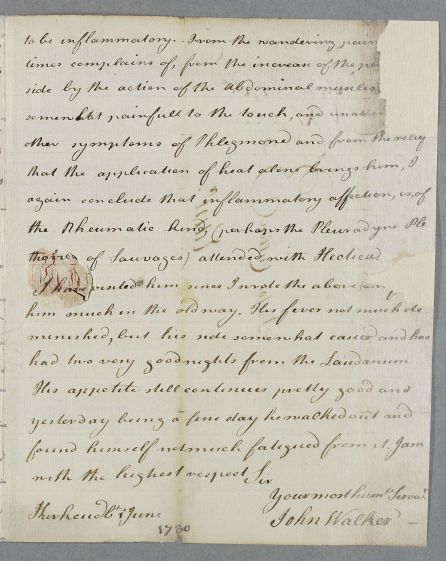 to be inflammatory. From the wandering pain
times complains of, from the increase of the
side by the action of the Abdominal muscles
somewhat painfull to the touch, and
other symptoms of Phlegmone and from the
that the application of heat alone brings him, I
again conclude that inflammatory affection, is, of
the Rheumatic kind, (perhaps the Pleuradyne Ple
of Sauvages) attended with Hectical
I have visited him since I wrote the above
him much in the old way. His fever not much de
minished, but his side somewhat easier, and has
had two very good nights from the Laudanum
His appetite still continues pretty good and
yesterday being a fine day he walked out and
found himself not much fatigued from it. I am
with the highest respect, Sir
Your most humle Servat
June
John Walker
1780